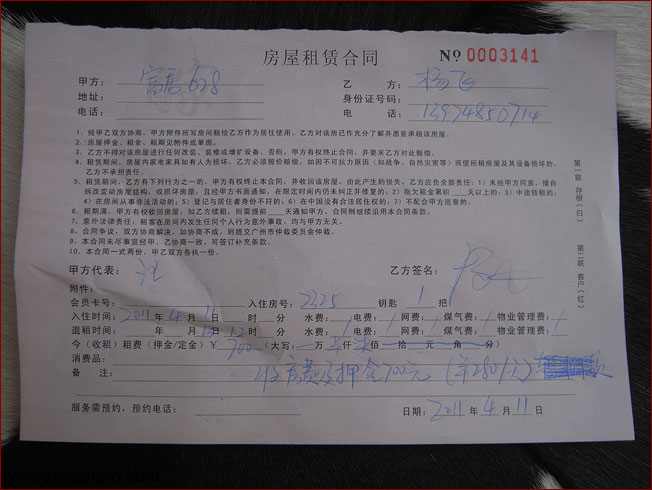 房屋租赁合同 № 0003141
甲方：富居628 乙方：杨飞
地址： 身份证号码：
电话： 电话：13974850714
1、经甲乙双方协商，甲方附件所写房间租给乙方作为居住使用。乙方对该房已作充分了解并愿意承租该房屋。
2、房屋押金、租金，租期见附件或单面。
3、乙方不得对该房屋进行任何改装、装修或增扩设备，否则，甲方有权终止合同，并要求乙方对此赔偿。
4、租赁期间，房屋内家电家具如有人为损坏，乙方必须照价赔偿，如因不可抗力原因（如战争、自然灾害等）而使所租房屋及其设备损坏的，
乙方不承担责任。
5、租赁期间，乙方有下列行为之一的，甲方有权终止本合同，并收回该房屋，由此产生的损失，乙方应负全部责任；1）未经甲方同意，擅自
拆改变动房屋结构，或损坏房屋，且经甲方书面通知，在限定时间内仍未纠正并修复的；2）拖欠租金累积___天以上的；3）中途转租的；
4）在房间从事非法活动的；5）登记与居住者身份不符的；6）在中国没有合法居住权的；7）不配合甲方巡查的。
6、租期满，甲方有权收回房屋；如乙方续租，则需提前___天通知甲方，合同则继续沿用本合同条款。
7、意外法律责任，租客在房间内发生任何个人行为意外事故，均与甲方无关。
8、合同争议，双方协商解决，如协商不成，则提交广州市仲裁委员会仲裁。
9、本合同未尽事宜经甲、乙协商一致，可签订补充条款。
10、本合同一式两份，甲乙双方各执一份。
第一联 存根（白） 第二联 客户（红）
甲方代表： 乙方签名：
附件：
会员卡号： 入住房号：2325 钥匙 1 把
入住时间：2011年4月11日 时 分 水费：/ 电费：/ 网费：/ 煤气费：/ 物业管理费：/
退租时间： 年 月12日 时 分 水费：/ 电费：/ 网费：/ 煤气费：/ 物业管理费：/
今（收租）租费（押金/定金）￥700（大写： 万 仟柒佰 拾 元 角 分）
消费品：
备 注：收房费及押金700元（ 280/天） 款
服务需预约，预约电话： 日期：2011年4月11日
www.midphoto.com